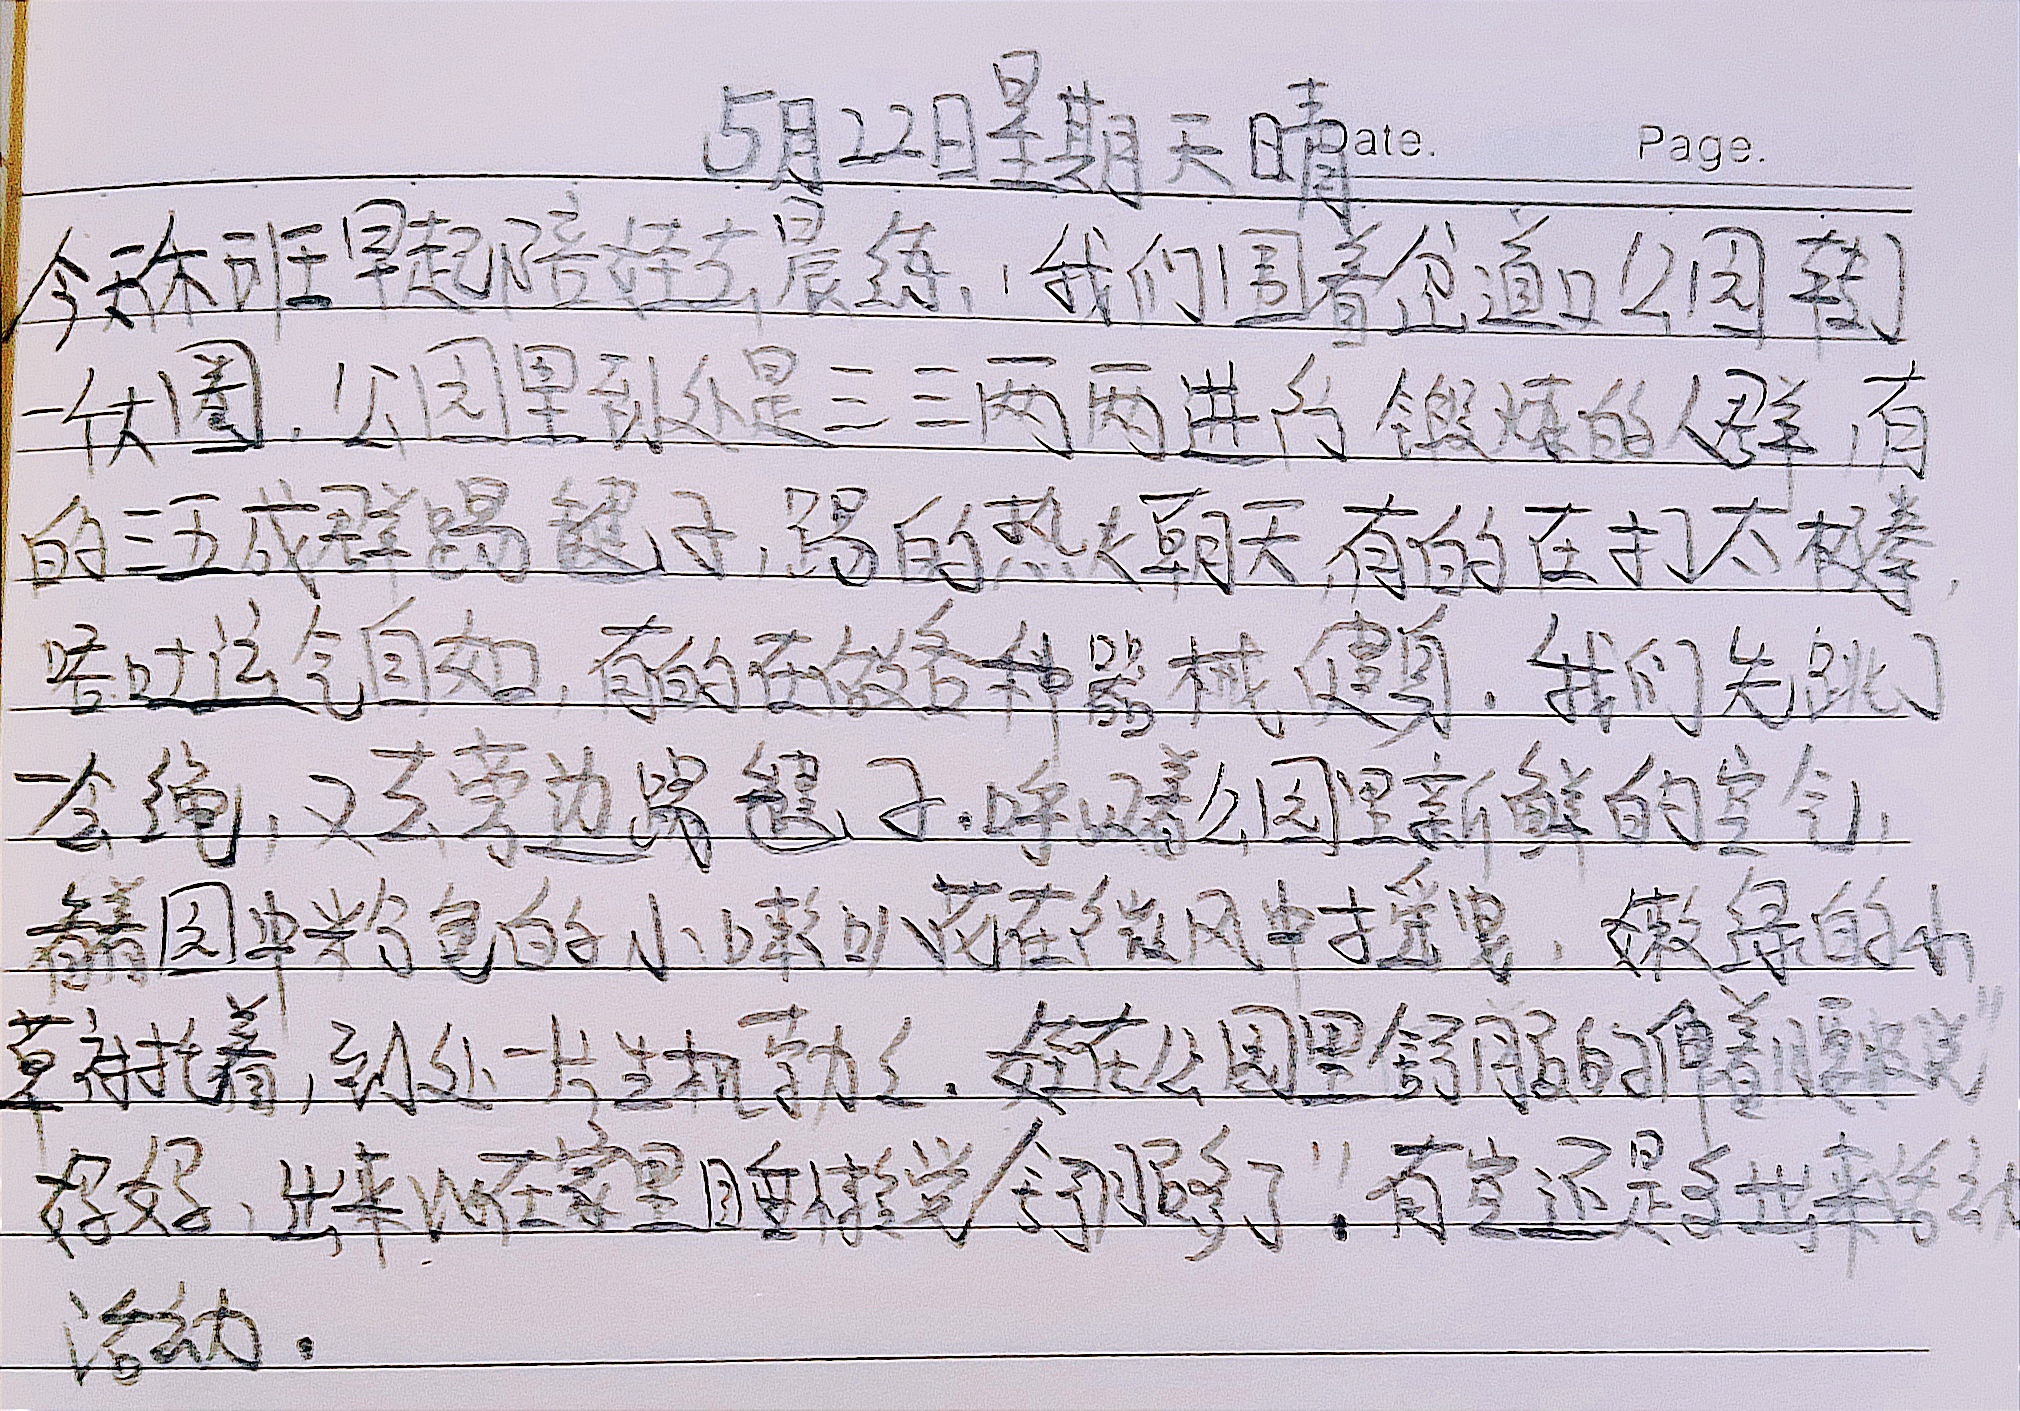 5月22日星期天 晴 Date. Page.
今天休班早起陪娃去晨练,我们围着岔道口公园转了
一个大圈.公园里到处是三三两两进行锻炼的人群,有
的三五成群踢毽子,踢的热火朝天,有的在打太极拳,
吐运气自如,有的在做各种器械健身.我们先跳了
一会绳,又去旁边踢毽子.呼吸着公园里新鲜的空气,
看着园中粉色的小喇叭花在微风中摇曳,嫩绿的小
草衬托着,到处一片生机勃勃.娃在公园里舒服的伸着懒腰说"
好好,出来比在家里睡懒觉舒服多了".有空还是多出来活动
活动.